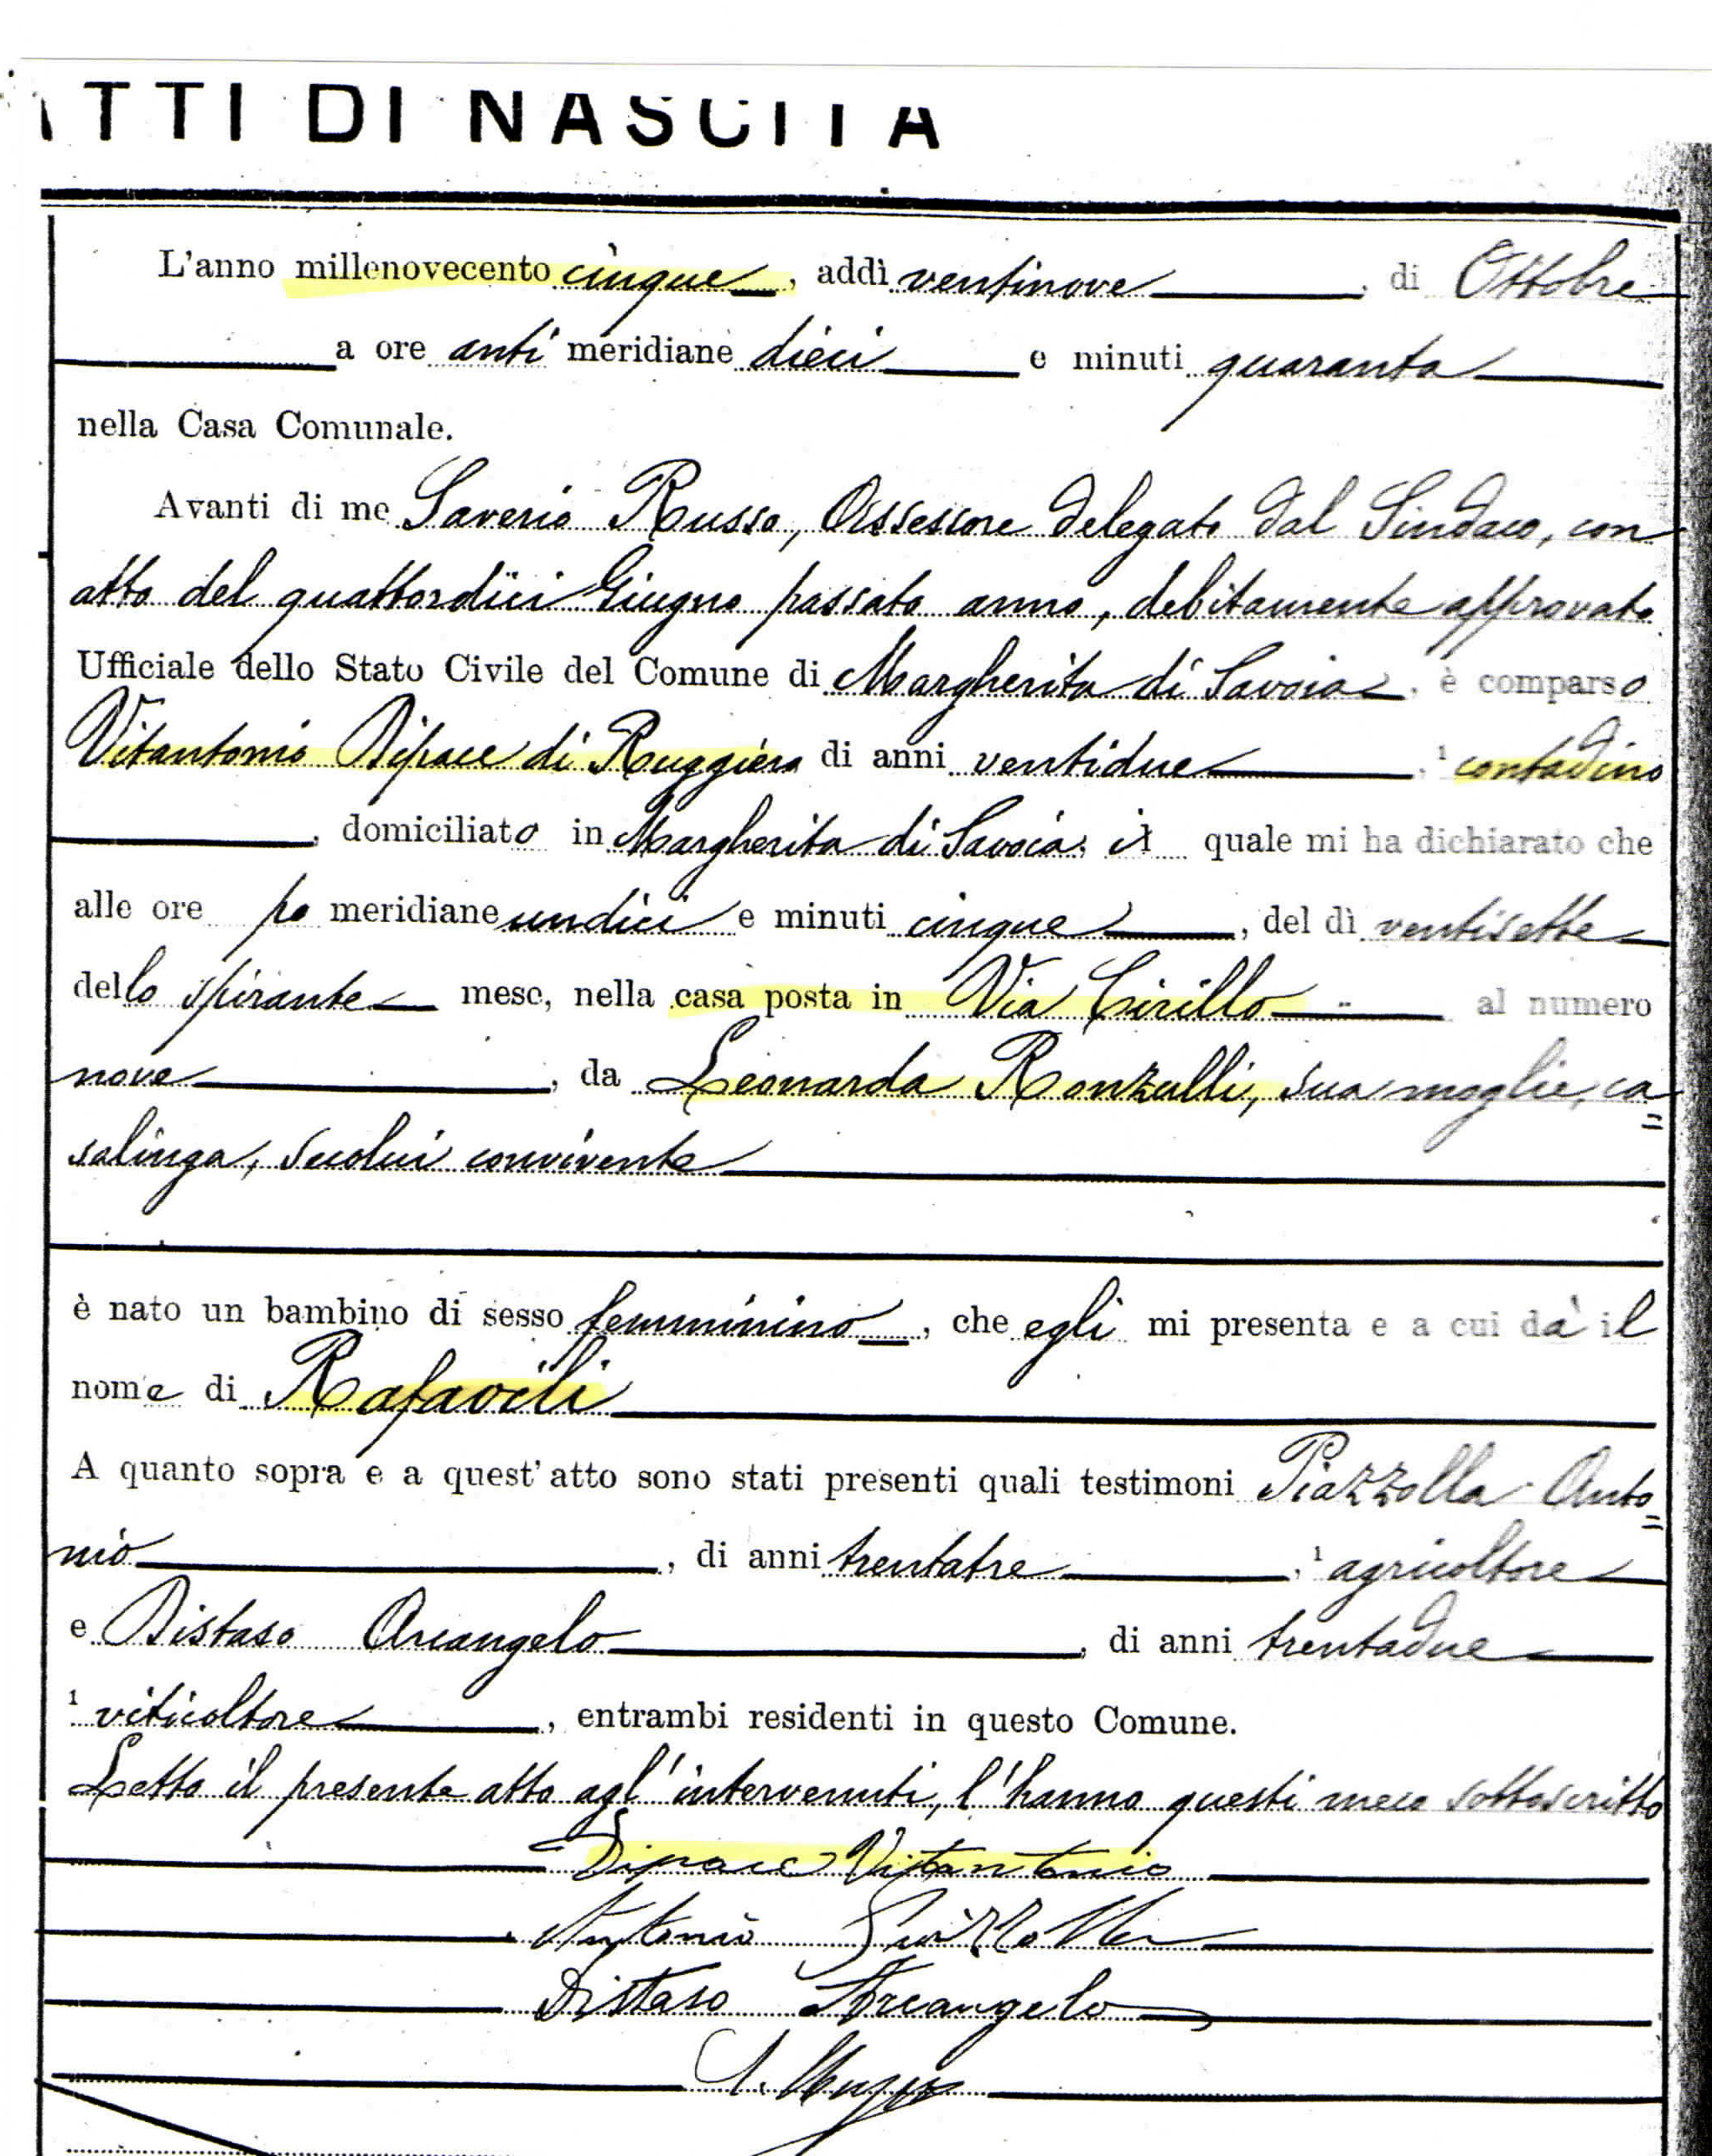 ATTI DI NASCITA
L'anno millenovecento cinque, addì ventinove, di Ottobre
a ore anti meridiane dieci e minuti quaranta
nella Casa Comunale.
Avanti di me Saverio Russo, Assessore delegato dal Sindaco, con
atto del quattordici Giugno passato anno, debitamente approvato
Ufficiale dello Stato Civile del Comune di Margherita di Savoia, è comparso
Vitantonio Dipace di Ruggiero di anni ventidue, ¹ contadino
, domiciliato in Margherita di Savoia, il quale mi ha dichiarato che
alle ore po meridiane undici e minuti cinque, del dì ventisette
dello spirante mese, nella casa posta in Via Cirillo al numero
nove, da Leonarda Ronzulli, sua moglie, ca=
salinga, secolui convivente
è nato un bambino di sesso femminino, che egli mi presenta e a cui dà il
nome di
A quanto sopra e a quest'atto sono stati presenti quali testimoni Piazzolla Anto=
nio, di anni trentatre, ¹ agricoltore
e Distaso Arcangelo, di anni trentadue
¹ viticoltore, entrambi residenti in questo Comune.
Letto il presente atto agl'intervenuti, l'hanno questi meco sottoscritto
Dipace Vitantonio
Antonio Piazzolla
Distaso Arcangelo